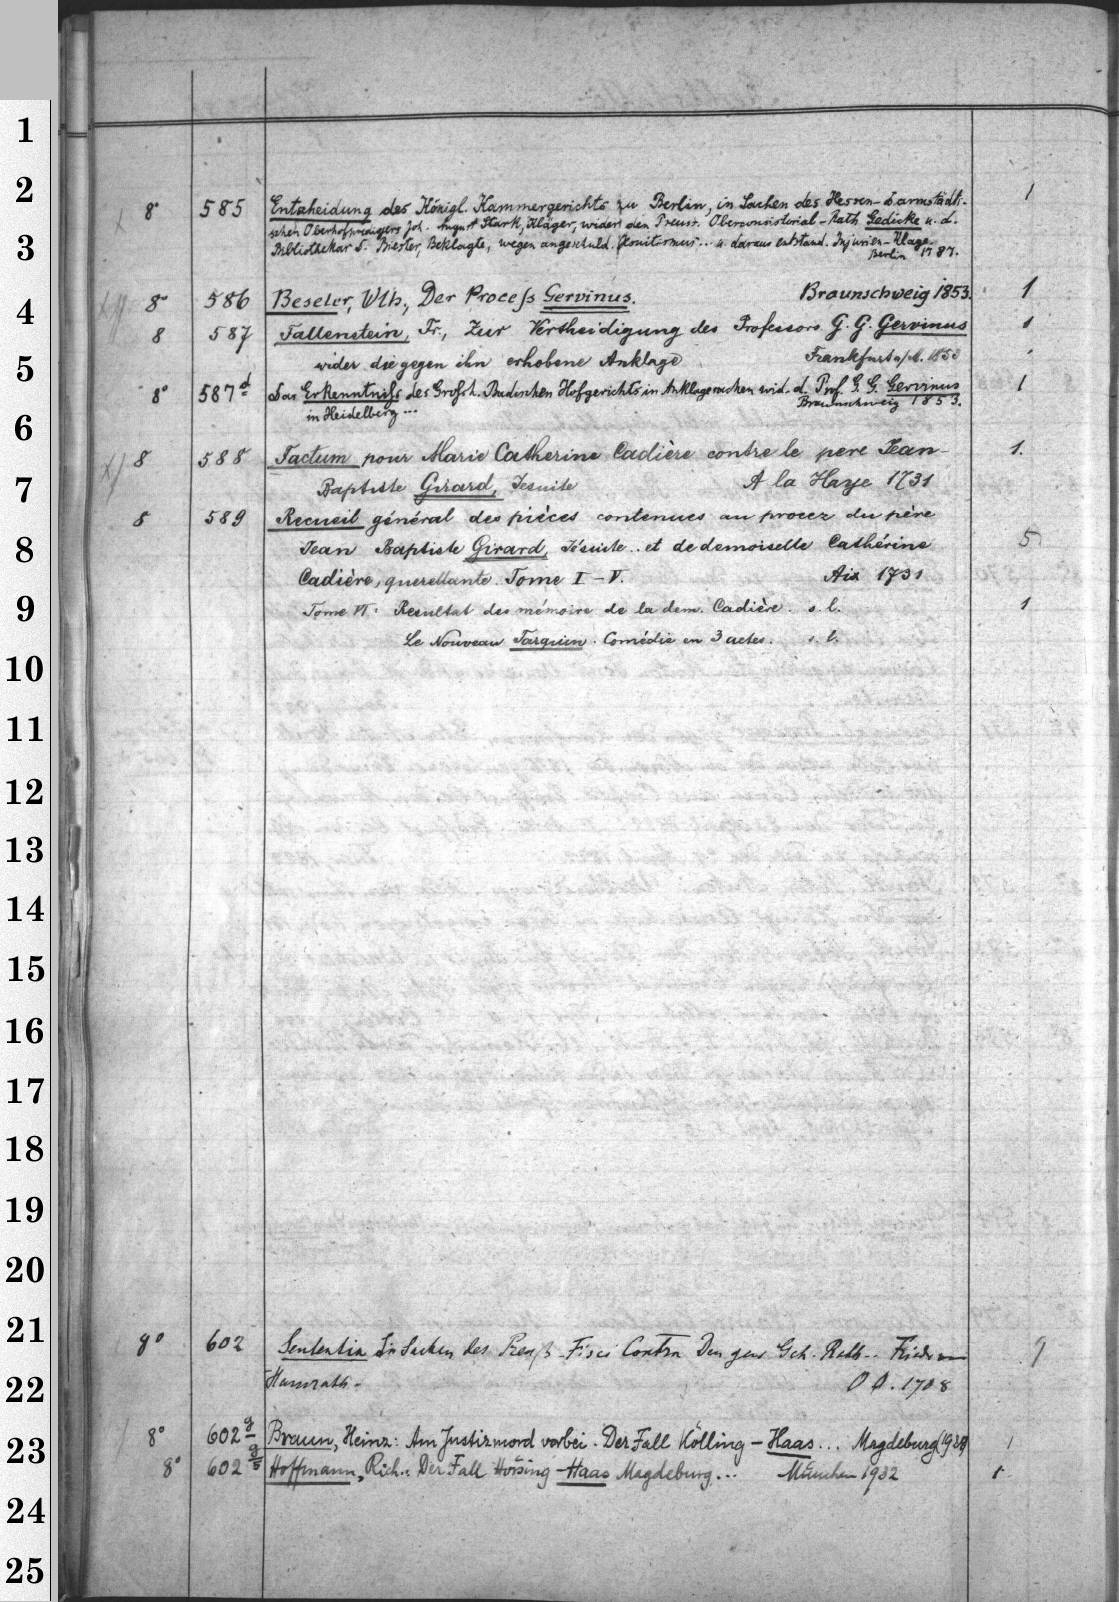 1
2
8° 585 Entscheidung des Königl. Kammergerichts zu Berlin, in Sachen des Hessen-Darmstädti- 1
schen Oberhofpredigers Joh. August Stark, Kläger, wider den Preuss. Oberconsistorial-Rath Gedicke u. d.
3
Bibliothekar D. Biester, Beklagte, wegen angeschuld. Jesuitismus... u. daraus entstand. Injurien-Klage.
Berlin 1787.
8° 586 Beseler, Wlh., Der Proceß Gervinus. Braunschweig 1853. 1
4
8 587 Fallenstein, Fr., Zur Vertheidigung des Professors G. G. Gervinus 1
wider die gegen ihn erhobene Anklage Frankfurt a/M. 1853
5
8° 587d Das Erkenntniß des Grosh. Badischen Hofgerichts in Anklagesachen wid. d. Prof. G. G. Gervinus 1
in Heidelberg ... Braunschweig 1853.
6
8 588 Factum pour Marie Catherine Cadière contre le pere Jean- 1.
7
Baptiste Girard, Jesuite A la Haye 1731
8 589 Recueil général des pièces contenues au procez du père
8
Jean Baptiste Girard, Jésuite .. et de demoiselle Cathérine 5
Cadière, querellante. Tome I-V. Aix 1731
9
Tome VI: Resultat des mémoire de la dem. Cadière. s. l. 1
Le Nouveau Tarquin. Comédie en 3 actes. s. l.
10
11
12
13
14
15
16
17
18
19
20
21
8° 602 Sententia In Sachen des Preuß. Fisci Contra Den gew Geh. Rath..
22
Hamrath. O O. 1708
8° 602 Braun, Heinz: Am Justizmord vorbei. Der Fall Kölling-Haas... Magdeburg (1928) 1
23
8° 602 Hoffmann, Rich.: Der Fall Hörsing-Haas Magdeburg... München 1932 1
24
25